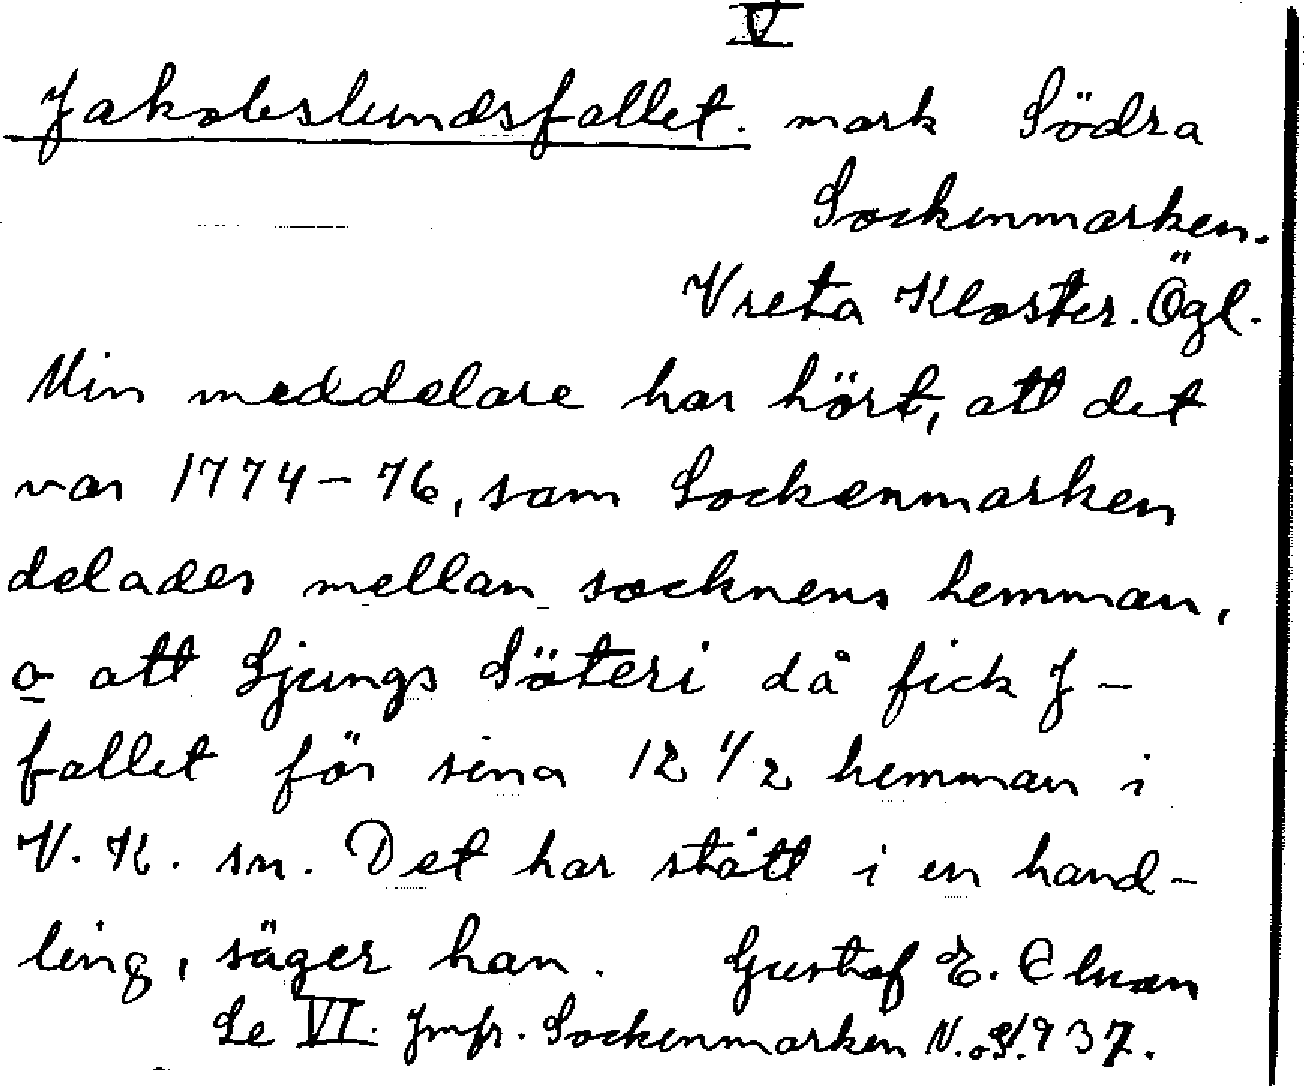 V
Jakobslundsfallet. mark Södra
Sockenmarken.
Vreta Kloster. Ögl.
Min meddelare har hört, att det
var 1774-76, som Sockenmarken
delades mellan socknens hemman,
o att Ljungs Säteri då fick J-
fallet för sina 12 1/2 hemman i
V. K. sn. Det har stått i en hand-
ling, säger han. Gustaf E.
Se VI. Jmfr. Sockenmarken N. o S. 1937.